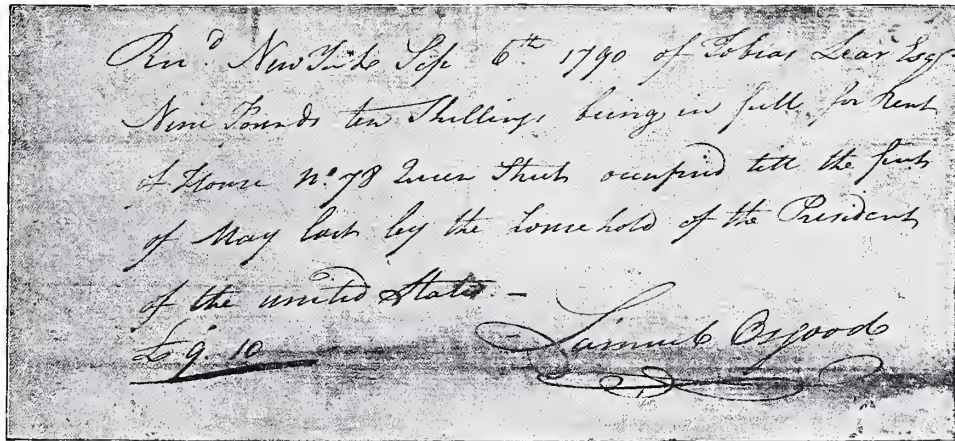 Rec'd New York Sep 6th 1790 of Tobias Lear Esqr
Nine Pounds ten Shillings being in full for Rent
of House No 78 Queen Street occupied till the first
of May last by the household of the President
of the United States –
£9.10
Samuel Osgood